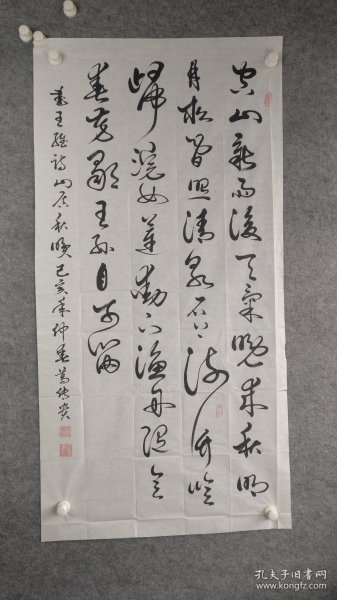 空山新雨後天氣晚來秋明
月松間照清泉石上流竹喧
歸浣女蓮動下漁舟隨意
春芳歇王孫自可留
書王維詩山居秋暝己亥年仲春
孔夫子旧书网